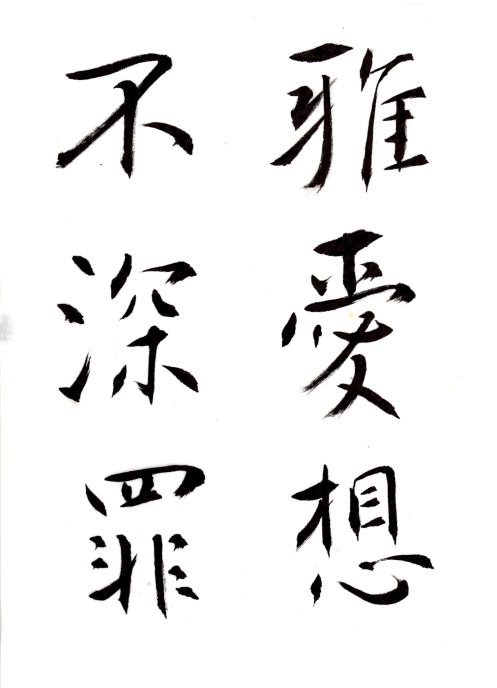 雅愛想
不深罪